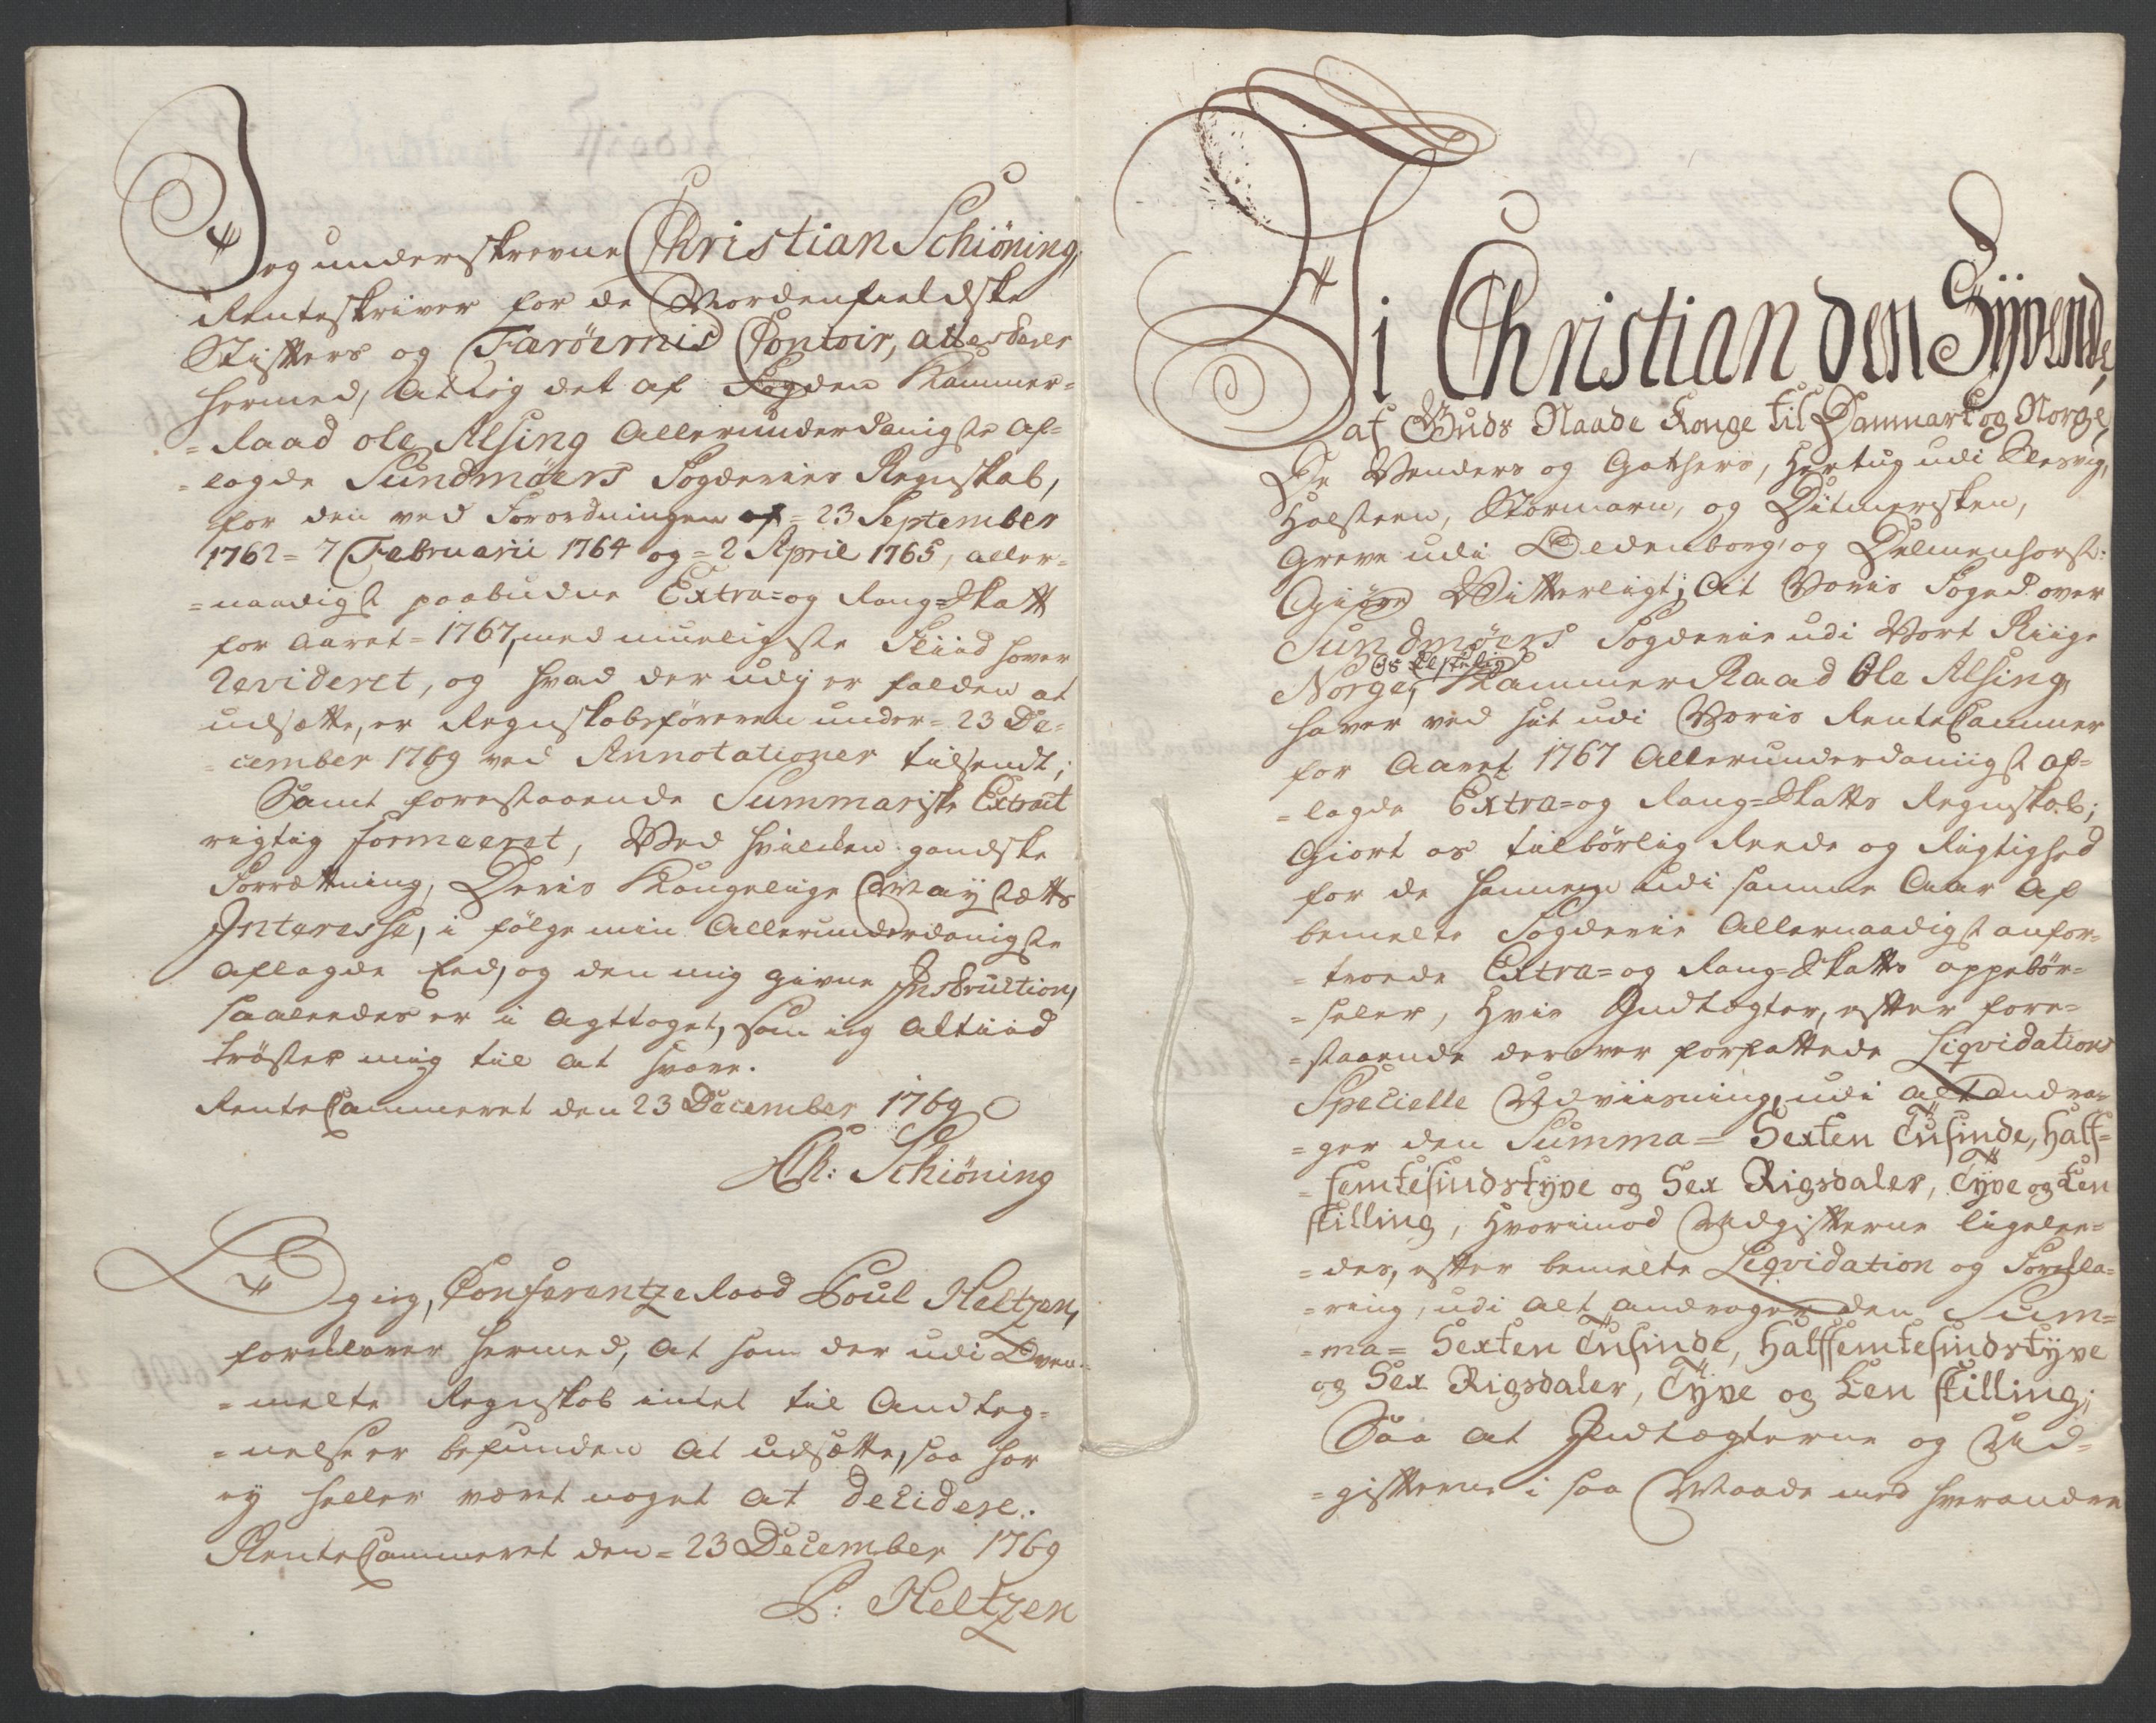 Jeg underskrevne Christian Schiöning,
Renteskriver for de Nordenfieldske
Stifters og Færöernis Contoir, attesterer
hermed, at jeg det af Fogden Kammer-
=Raad Ole Alsing Allerunderdanigste af-
=lagde Sundmöers Fogderies Regnskab,
for den ved Forordningen af = 23 September
1762 = 7 Februarii 1764 og = 2 April 1765, aller-
=naadigst paabudne Extra= og Rang=Skatt
for Aaret = 1767, med mueligste Fliid haver
Revideret, og hvad derudj er falden at
udsætte, er Regnskabsföreren under = 23 De-
=cember 1769 ved Annotationer tilsendt;
Samt forestaaende Summariske Extract
rigtig formeeret, Ved hvilcken gandske
Forrættning, Deris Kongelige Mayestæts
Interesse, i fölge min Allerunderdanigste
aflagde Eed, og den mig givne Instruction,
saaleedes er i Agttaget, som ieg altiid
tröster mig til at svare.
RenteCammeret den 23 December 1769
Ch: Schiöning
Og ieg, ConferentzeRaad Poul Heltzen,
forklarer hermed, at som der udi Oven-
=melte Regnskab intet til Andteg-
=nelse er befunden at udsætte, saa har
ey heller været noget at Decidere.
RenteCammeret den = 23 December 1769
P: Heltzen
Vi Christian den Syvende,
af Guds Naade Konge til Danmark og Norge,
De Venders og Gothers, Hertug udi Slesvig,
Holsteen, Stormarn, og Ditmersken,
Greve udi Oldenborg og Delmenhorst:
Giöre Vitterligt; at Voris Foged over
Sundmöers Fogderie udi Vort Riige
Os Elskelig
Norge, KammerRaad Ole Alsing,
haver ved sit udi Voris RenteCammer
for Aaret 1767 Allerunderdanigst af-
=lagde Extra= og Rang=Skatts Regnskab;
Giort os tilbörlig Reede og Rigtighed
for de hannem udi samme Aar af
bemelte Fogderie Allernaadigst anfor-
=troede Extra= og Rang=Skatts oppebör-
=seler, Hvis Indtægter, efter fore-
=staaende derover forfattede Liqvidations
Specielle Udviisning, udi alt andra-
=ger den Summa = Sexten Tusinde, Half-
=femtesindstyve og Sex Rigsdaler, Tyve og Een
skilling, Hvorimod Udgifterne ligelee-
=des, efter bemelte Liqvidation og Forkla-
=ring, udi alt andrager den Sum-
=ma = Sexten Tusinde, Halffemtesindstyve
og Sex Rigsdaler, Tyve og Een skilling;
Saa at Indtægterne og Ud-
=gifterne i saa Maade med hverandre